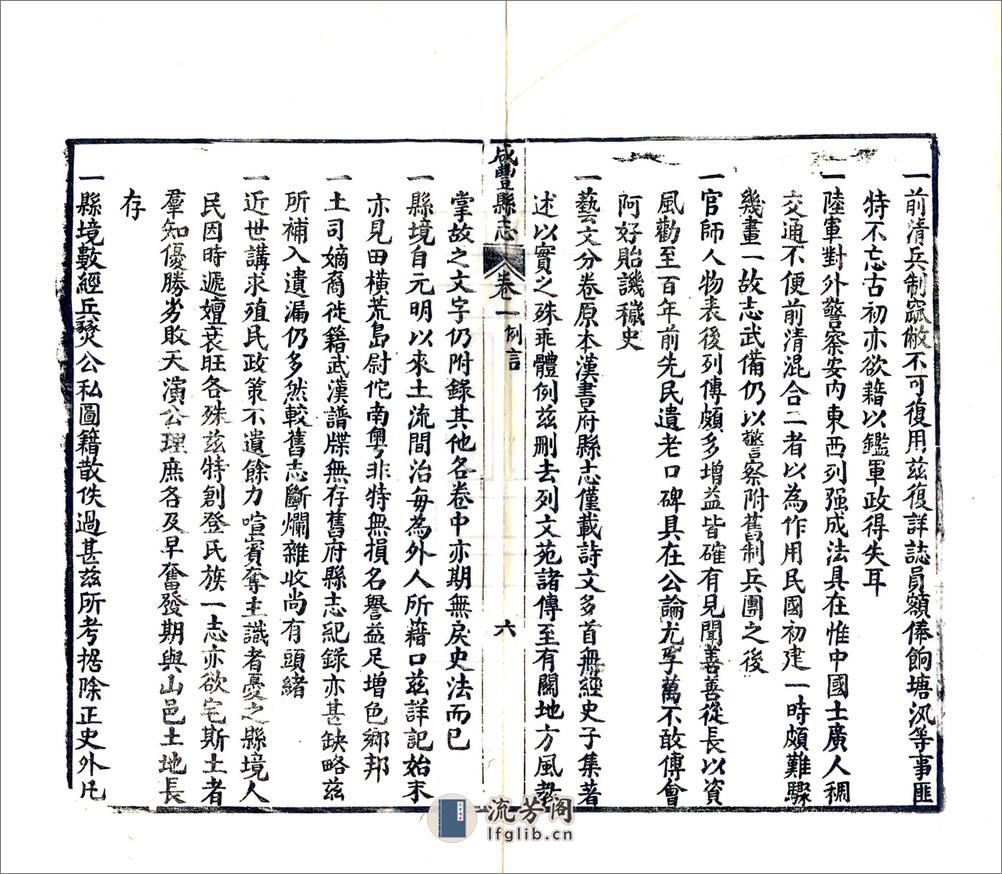 一前清兵制窳敝不可復用兹復詳誌員額俸餉塘汛等事匪
特不忘古初亦欲藉以鑑軍政得失耳
一陸軍對外警察安内東西列强成法具在惟中國土廣人稠
交通不便前清混合二者以為作用民國初建一時頗難驟
幾畫一故志武備仍以警察附舊制兵團之後
一官師人物表後列傳頗多增益皆確有見聞善善從長以資
風勸至百年前先民遺老口碑具在公論尤孚萬不敢傳會
阿好貽譏穢史
一藝文分卷原本漢書府縣志僅載詩文多首無經史子集著
述以實之殊乖體例兹删去列文苑諸傳至有關地方風教
咸豐縣志
卷一
例言
六
掌故之文字仍附錄其他各卷中亦期無戾史法而已
一縣境自元明以來土流間治每為外人所藉口兹詳記始末
亦見田橫荒島尉佗南粤非特無損名譽益足增色鄉邦
一土司嫡裔徙籍武漢譜牒無存舊府縣志紀錄亦甚缺略兹
所補入遺漏仍多然較舊志斷爛雜收尚有頭緒
一近世講求殖民政策不遺餘力喧賓奪主識者憂之縣境人
民因時遞嬗衰旺各殊兹特創登氏族一志亦欲宅斯土者
羣知優勝劣敗天演公理庶各及早奮發期與山邑土地長
存
一縣境數經兵燹公私圖籍散佚過甚兹所考据除正史外凡
流芳阁
lfglib.cn